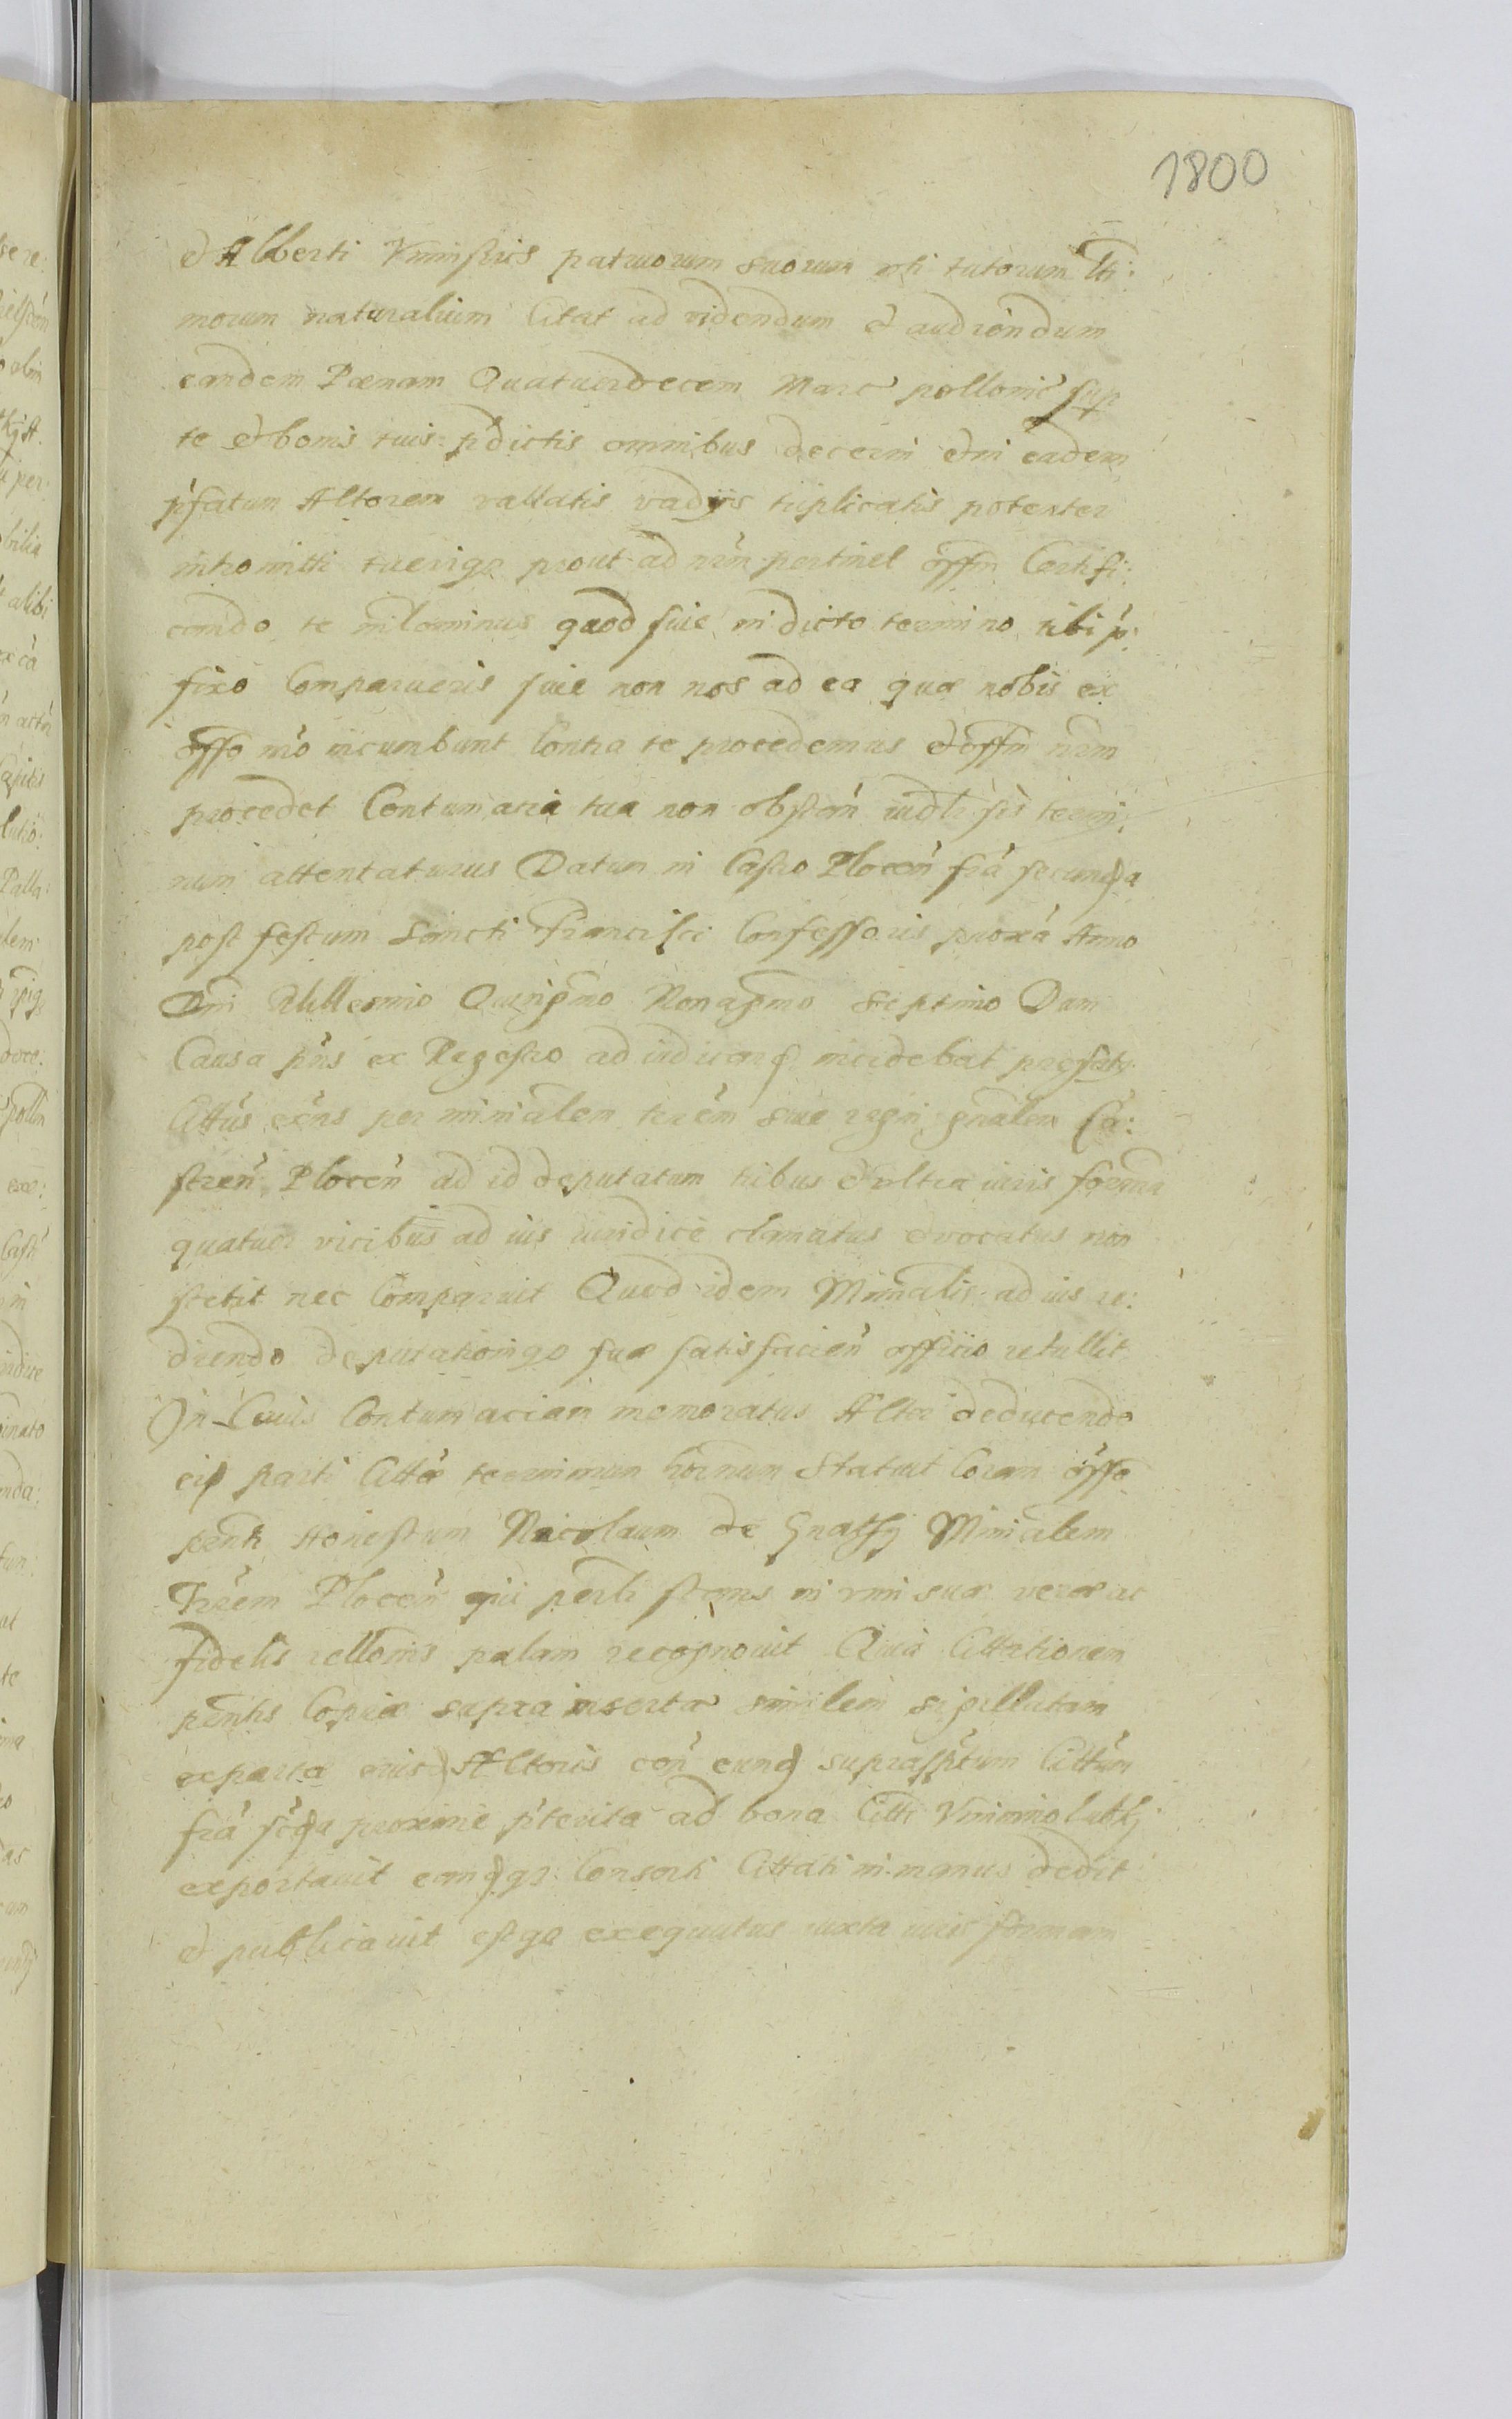 1800
et Alberti patruorum suorum uti tutorum lti:
morum naturalium Citat ad videndum et audiendum
eandem Pænam Quatuordecem Marc pollonic sup
te et bonis tuis pdictis omnibus decerni et in eadem
pfatum Actorem vallatis vadÿs triplicatis potenter
intromitti tueriqz prout ad nrm pertinet offm Certifi:
cando te nilominus quod siue in dicto termino tibi p:
fixo Comparueris siue non nos ad ea quæ nobis ex
offo nro incumbunt Contra te procedemus et offm nrm
procedet Contumacia tua non obsten iudlr sis termi:
num attentaturus Datum in Castro Plocen fra secunda
post festum Sancti Francisci Confessoris proxa Anno
Dni Millesimo Quingmo Nonagmo Septimo Dum
Causa pns ex Regestro ad iudicand incidebat prefat
Cittus eens per minialem terem siue regni gnalem Ca:
stren Plocen ad id deputatum tribus et vltra iuris forma
quatuor vicibus ad ius iuridice clamatus et vocatus non
stetit nec Comparuit Quod idem Minialis ad ius re:
diendo deputationiqz suæ satisfacien officio retullit
In Cuius Contumaciam memoratus Actor deducendo
eid parti Cittæ terminum hornum Statuit Coram offo
pnti Honestum Nicolaum de Gnathÿ Minialem
Trrem Plocen qui pertr stans in vim suæ veræ ac
fidelis rellonis palam recognouit Quia Cittationem
pentis Copiæ supra insertæ similem sigillatam
ex parte eiusd Actoris con eund suprasptum Cittum
fra scda proxime pterita ad bona Citti
exportauit eandqz Consorti Cittati in manus dedit
et publicauit estqz exequutus iuxta iuris formam